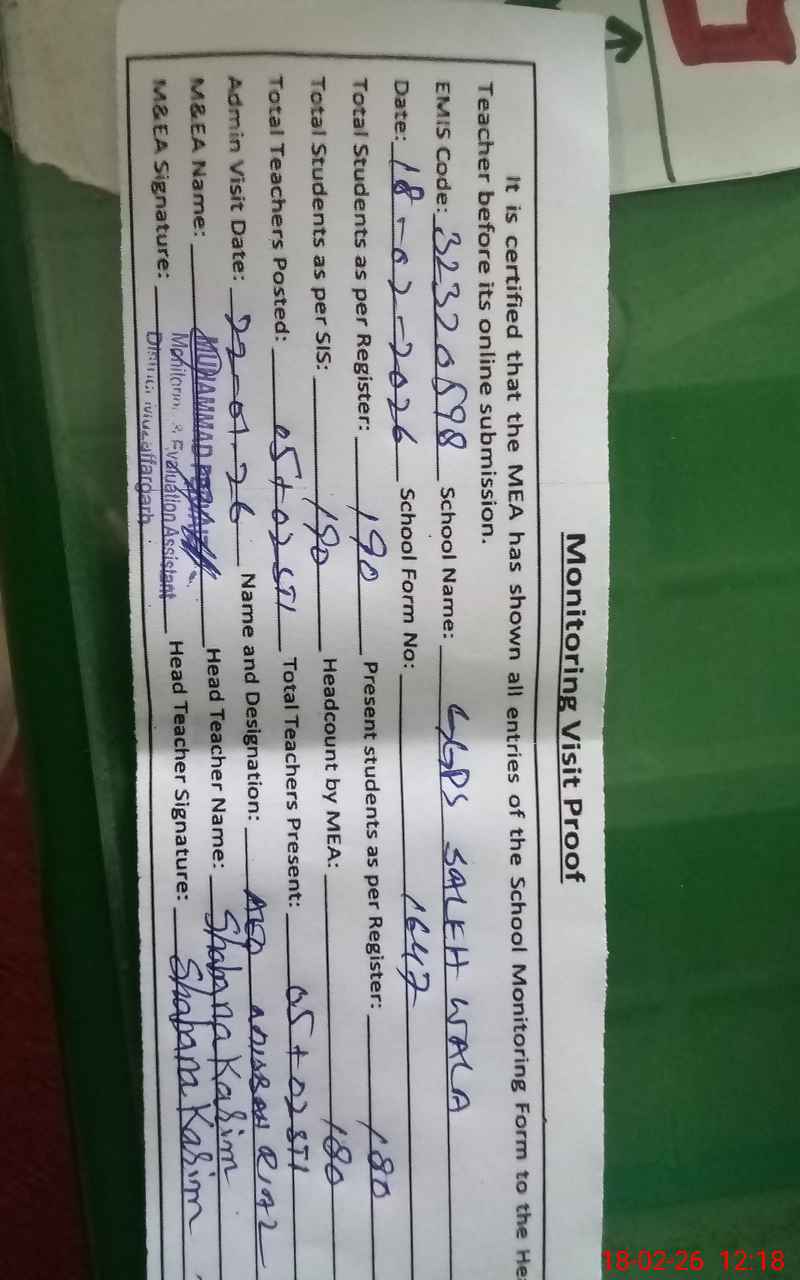 Monitoring Visit Proof
It is certified that the MEA has shown all entries of the School Monitoring Form to the He
Teacher before its online submission.
EMIS Code: 32320598 School Name: GGPS SALEH WALA
Date: 18-02-2026 School Form No: 1647
Total Students as per Register: 190 Present students as per Register: 180
Total Students as per SIS: 190 Headcount by MEA: 180
Total Teachers Posted: 05+02 STI Total Teachers Present: 05+02 STI
Admin Visit Date: 22-01-26 Name and Designation: AEO RIAZ
M&EA Name: MUHAMMAD Head Teacher Name: Shabana Kasim
M&EA Signature: Monitoring & Evaluation Assistant Head Teacher Signature: Shabana Kasim
District Muzaffargarh
18-02-26 12:18